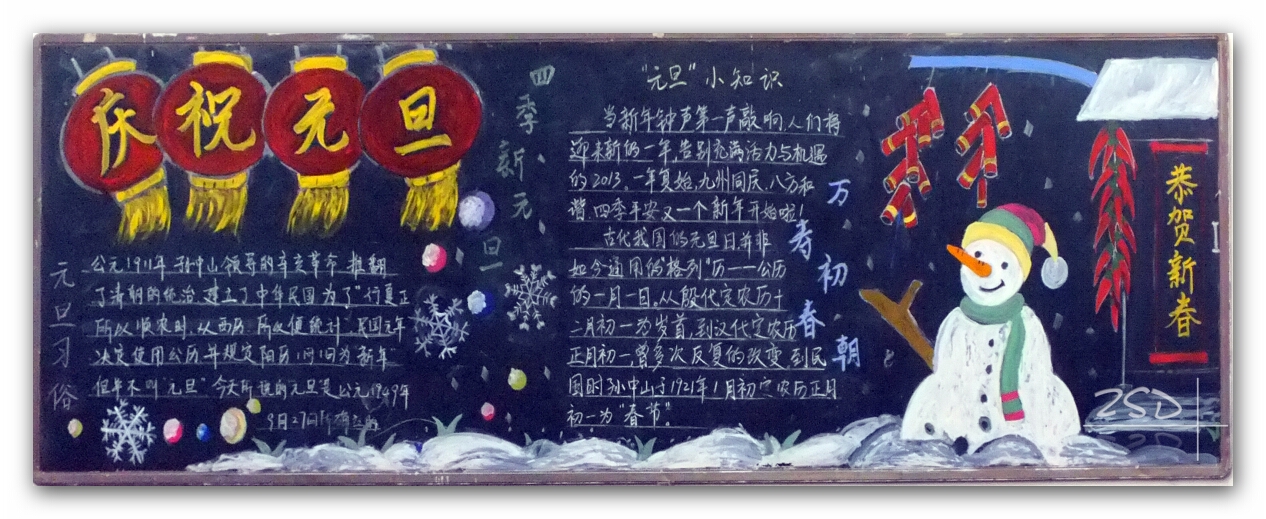 庆祝元旦
元旦习俗
公元1911年孙中山领导的辛亥革命,推翻
了清朝的统治,建立了中华民国为了"行夏正
所以顺农时,从西历,所以便统计",民国元年
决定使用公历,并规定阳历1月1日为"新年"
但并不叫"元旦"今天所说的元旦是公元1949年
9月27日
四季新元旦
"元旦"小知识
当新年钟声第一声敲响,人们将
迎来新的一年,告别充满活力与机遇
的2013。一年复始,九州同庆,八方和
谐,四季平安又一个新年开始啦!
古代我国的元旦日并非
如今通用的"格列"历——公历
的一月一日。从殷代定农历十
二月初一为岁首,到汉代定农历
正月初一,曾多次反复的改变,到民
国时孙中山于1921年1月初定农历正月
初一为"春节"。
万寿初春朝
恭贺新春
ZSD